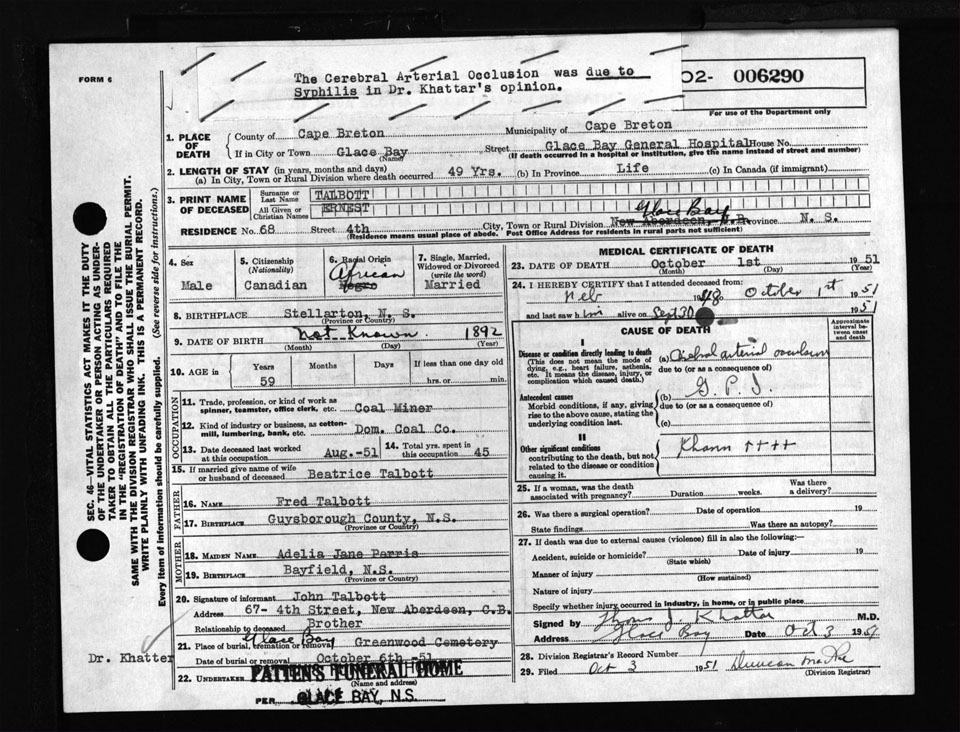 FORM 6
The Cerebral Arterial Occlusion was due to
Syphilis in Dr. Khattar's opinion.
02- 006290
For use of the Department only
1. PLACE OF DEATH
County of Cape Breton Municipality of Cape Breton
If in City or Town Glace Bay (Name) Street Glace Bay General Hospital House No.
(If death occurred in a hospital or institution, give the name instead of street and number)
2. LENGTH OF STAY (in years, months and days)
(a) In City, Town or Rural Division where death occurred 49 Yrs. (b) In Province Life (c) In Canada (if immigrant)
3. PRINT NAME OF DECEASED
Surname or Last Name TALBOTT
All Given or Christian Names ERNEST
Glace Bay
RESIDENCE No. 68 Street 4th City, Town or Rural Division New Aberdeen, C.B. Province N. S.
(Residence means usual place of abode. Post Office Address for residents in rural parts not sufficient)
4. Sex
Male
5. Citizenship (Nationality)
Canadian
6. Racial Origin
African
Negro
7. Single, Married, Widowed or Divorced (write the word)
Married
8. BIRTHPLACE Stellarton, N. S.
(Province or Country)
9. DATE OF BIRTH not known 1892
(Month) (Day) (Year)
10. AGE in Years Months Days If less than one day old
59 hrs. or min.
OCCUPATION
11. Trade, profession, or kind of work as spinner, teamster, office clerk, etc. Coal Miner
12. Kind of industry or business, as cotten-mill, lumbering, bank, etc. Dom. Coal Co.
13. Date deceased last worked at this occupation Aug.-51
14. Total yrs. spent in this occupation 45
15. If married give name of wife or husband of deceased Beatrice Talbott
FATHER
16. NAME Fred Talbott
17. BIRTHPLACE Guysborough County, N.S.
(Province or Country)
MOTHER
18. MAIDEN NAME Adelia Jane Parris
19. BIRTHPLACE Bayfield, N.S.
(Province or Country)
20. Signature of informant John Talbott
Address 67- 4th Street, New Aberdeen, C.B.
Relationship to deceased Brother
Glace Bay
21. Place of burial, cremation or removal Greenwood Cemetery
Date of burial or removal October 6th -51
22. UNDERTAKER PATTEN'S FUNERAL HOME
(Name and address)
PER GLACE BAY, N.S.
Dr. Khatter
MEDICAL CERTIFICATE OF DEATH
23. DATE OF DEATH October 1st 1951
(Month) (Day) (Year)
24. I HEREBY CERTIFY that I attended deceased from:
1948 October 1st 1951
and last saw him alive on Sept 30 1951
CAUSE OF DEATH
Approximate interval between onset and death
I
Disease or condition directly leading to death
(This does not mean the mode of dying, e.g., heart failure, asthenia, etc. It means the disease, injury, or complication which caused death.)
(a) Cerebral arterial occlusion
due to (or as a consequence of)
Antecedent causes
Morbid conditions, if any, giving rise to the above cause, stating the underlying condition last.
(b) G. P. I.
due to (or as a consequence of)
(c)
II
Other significant conditions
contributing to the death, but not related to the disease or condition causing it.
Khann ++++
25. If a woman, was the death associated with pregnancy? Duration weeks. Was there a delivery?
26. Was there a surgical operation? Date of operation 19
State findings Was there an autopsy?
27. If death was due to external causes (violence) fill in also the following:—
Accident, suicide or homicide? Date of injury 19
(State which)
Manner of injury
(How sustained)
Nature of injury
Specify whether injury occurred in industry, in home, or in public place
Signed by Thomas J. Khattar M.D.
Address Glace Bay Date Oct 3 1951
28. Division Registrar's Record Number
29. Filed Oct 3 1951 Duncan
(Division Registrar)
SEC. 46—VITAL STATISTICS ACT MAKES IT THE DUTY
OF THE UNDERTAKER OR PERSON ACTING AS UNDER-
TAKER TO OBTAIN ALL THE PARTICULARS REQUIRED
IN THE "REGISTRATION OF DEATH" AND TO FILE THE
SAME WITH THE DIVISION REGISTRAR WHO SHALL ISSUE THE BURIAL PERMIT.
WRITE PLAINLY WITH UNFADING INK. THIS IS A PERMANENT RECORD.
Every item of information should be carefully supplied. (See reverse side for instructions.)